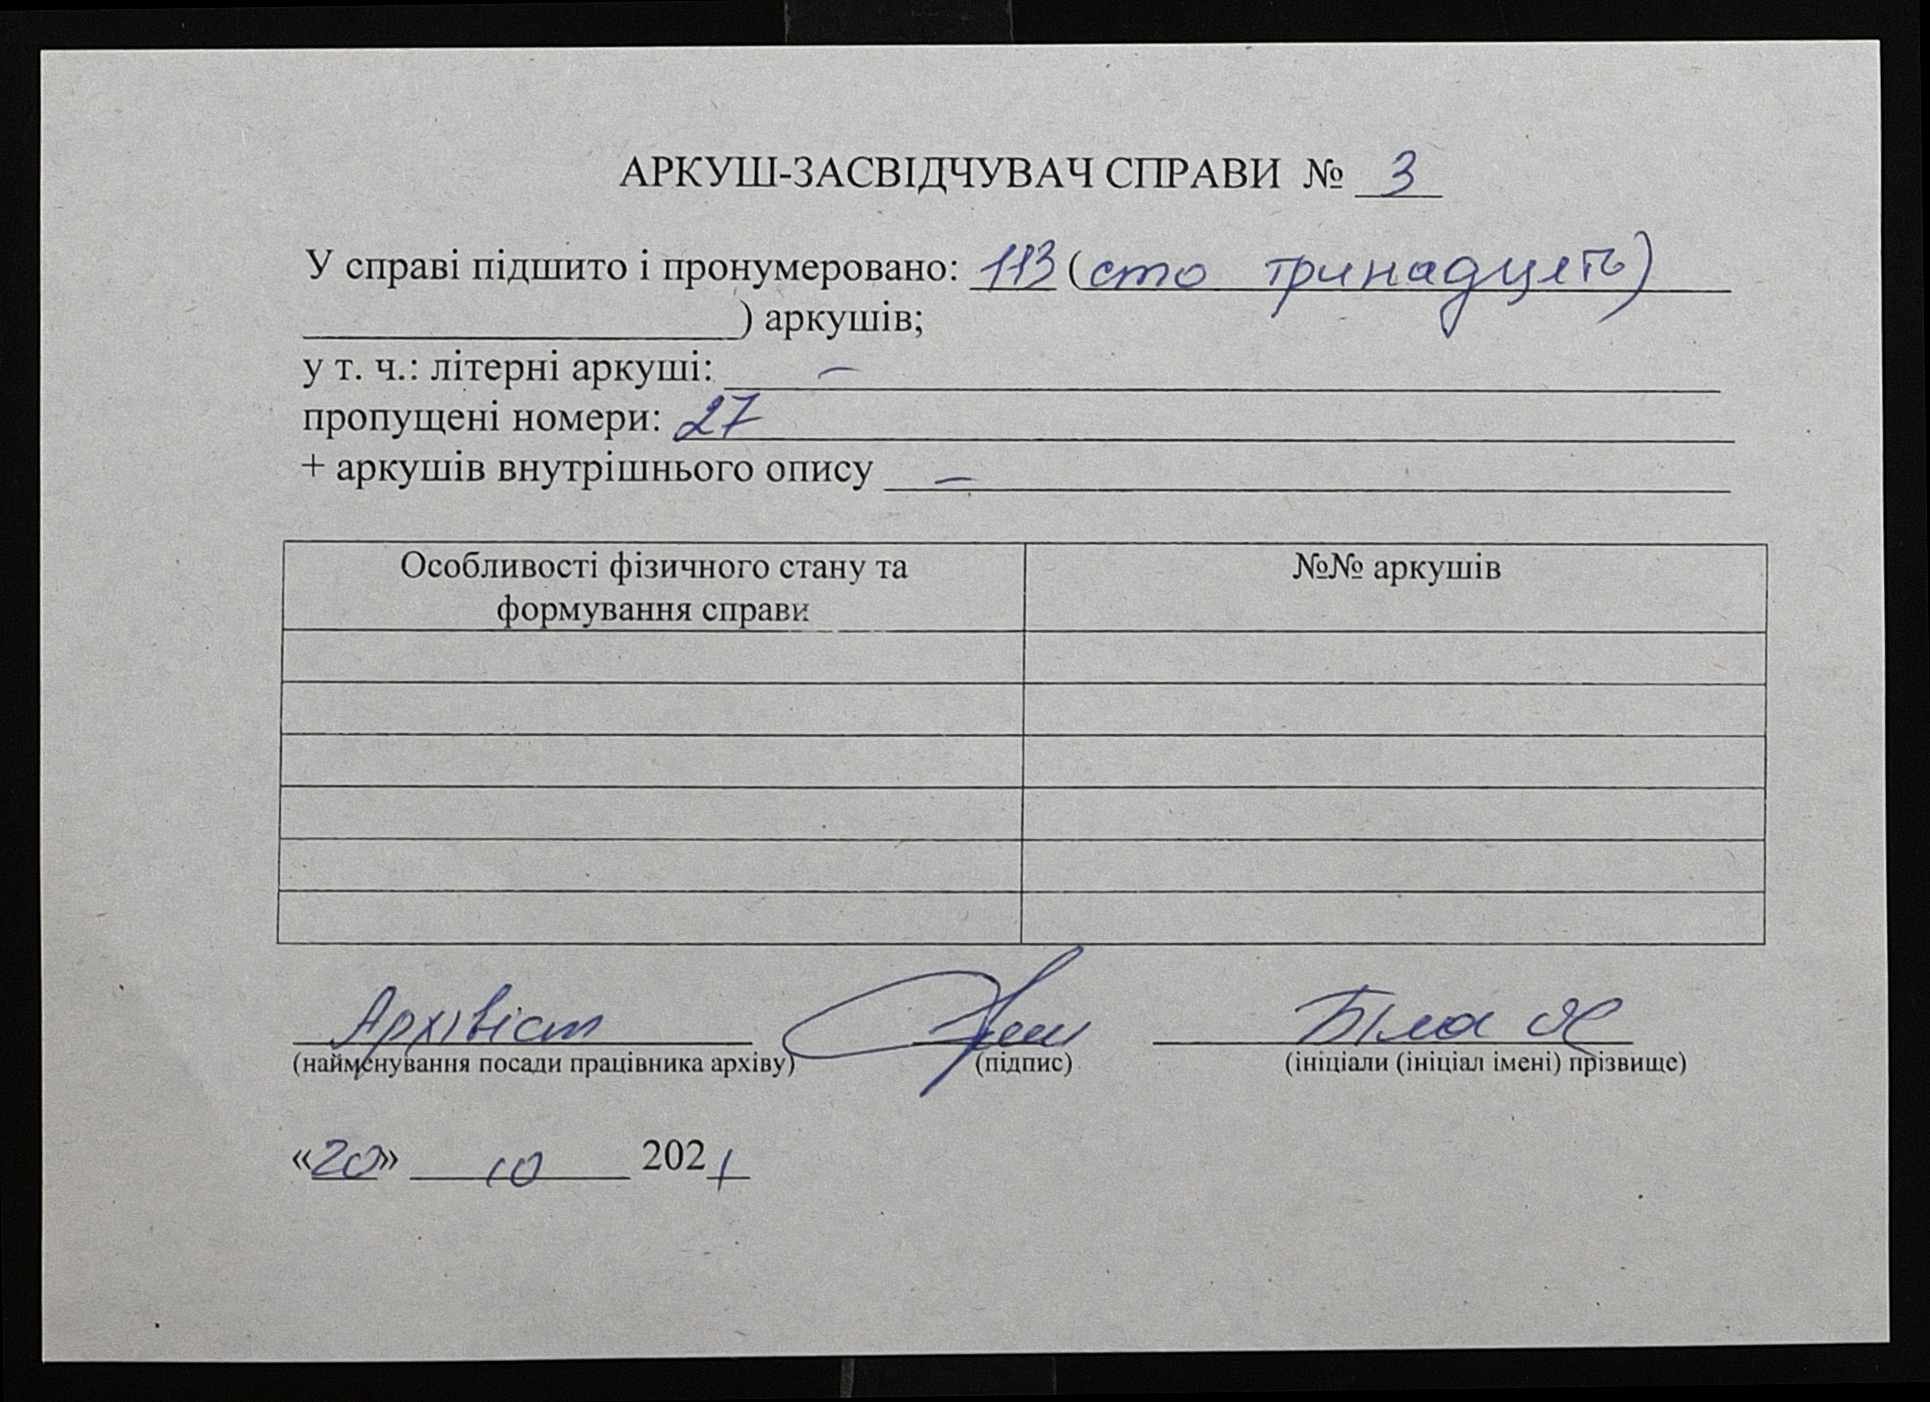 АРКУШ-ЗАСВІДЧУВАЧ СПРАВИ № 3
У справі підшито і пронумеровано: 113 (сто тринадцять)
) аркушів;
у т. ч.: літерні аркуші: –
пропущені номери: 27
+ аркушів внутрішнього опису –
Особливості фізичного стану та
формування справи
№№ аркушів
Архівіст Біла
(найменування посади працівника архіву) (підпис) (ініціали (ініціал імені) прізвище)
«20» 10 2021